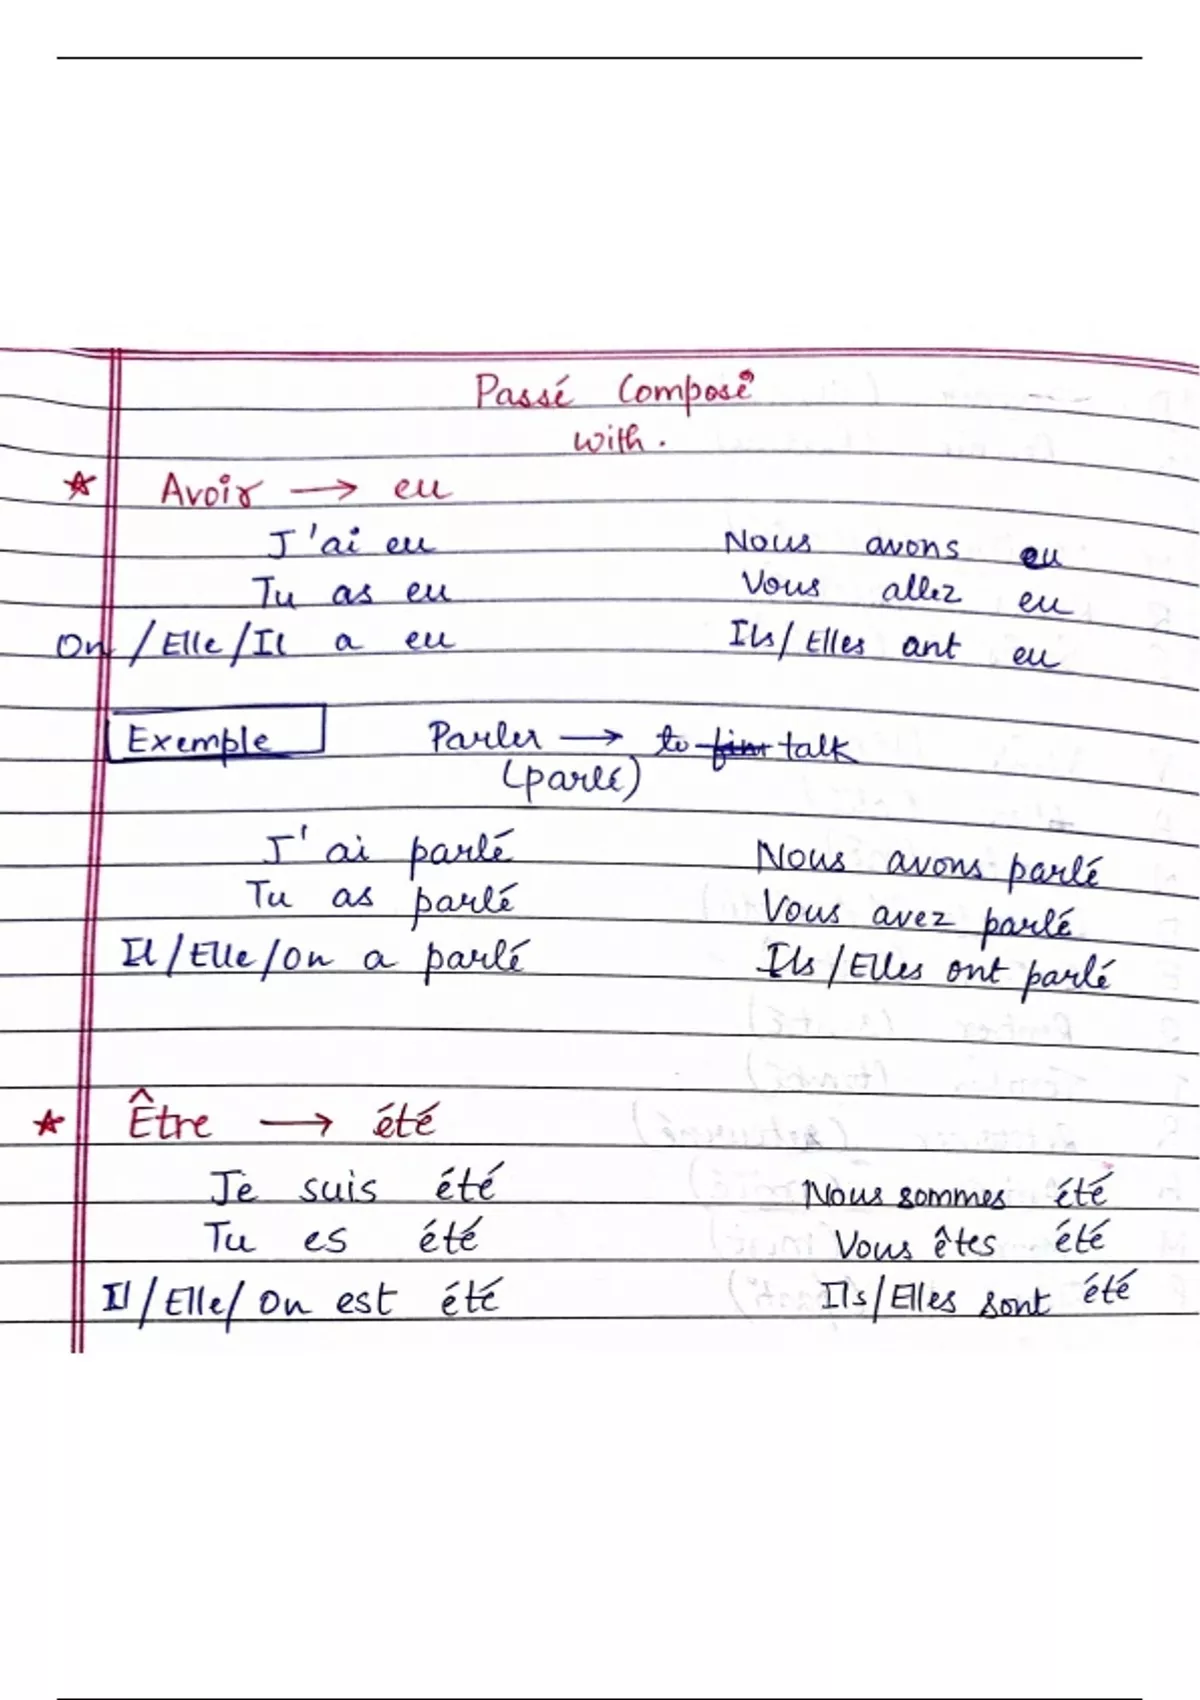 Passé Composé
with.
Avoir → eu
J'ai eu Nous avons eu
Tu as eu Vous allez eu
On/Elle/Il a eu Ils/Elles ant eu
Exemple Parler → to talk
(parlé)
J'ai parlé Nous avons parlé
Tu as parlé Vous avez parlé
Il/Elle/On a parlé Ils/Elles ont parlé
Être → été
Je suis été Nous sommes été
Tu es été Vous êtes été
Il/Elle/On est été Ils/Elles sont été